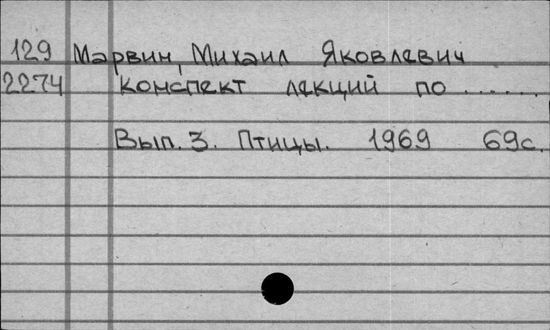 129 Марвин, Михаил Яковлевич
2274 Конспект лекций по ......
Вып. 3. Птицы. 1969 69с.